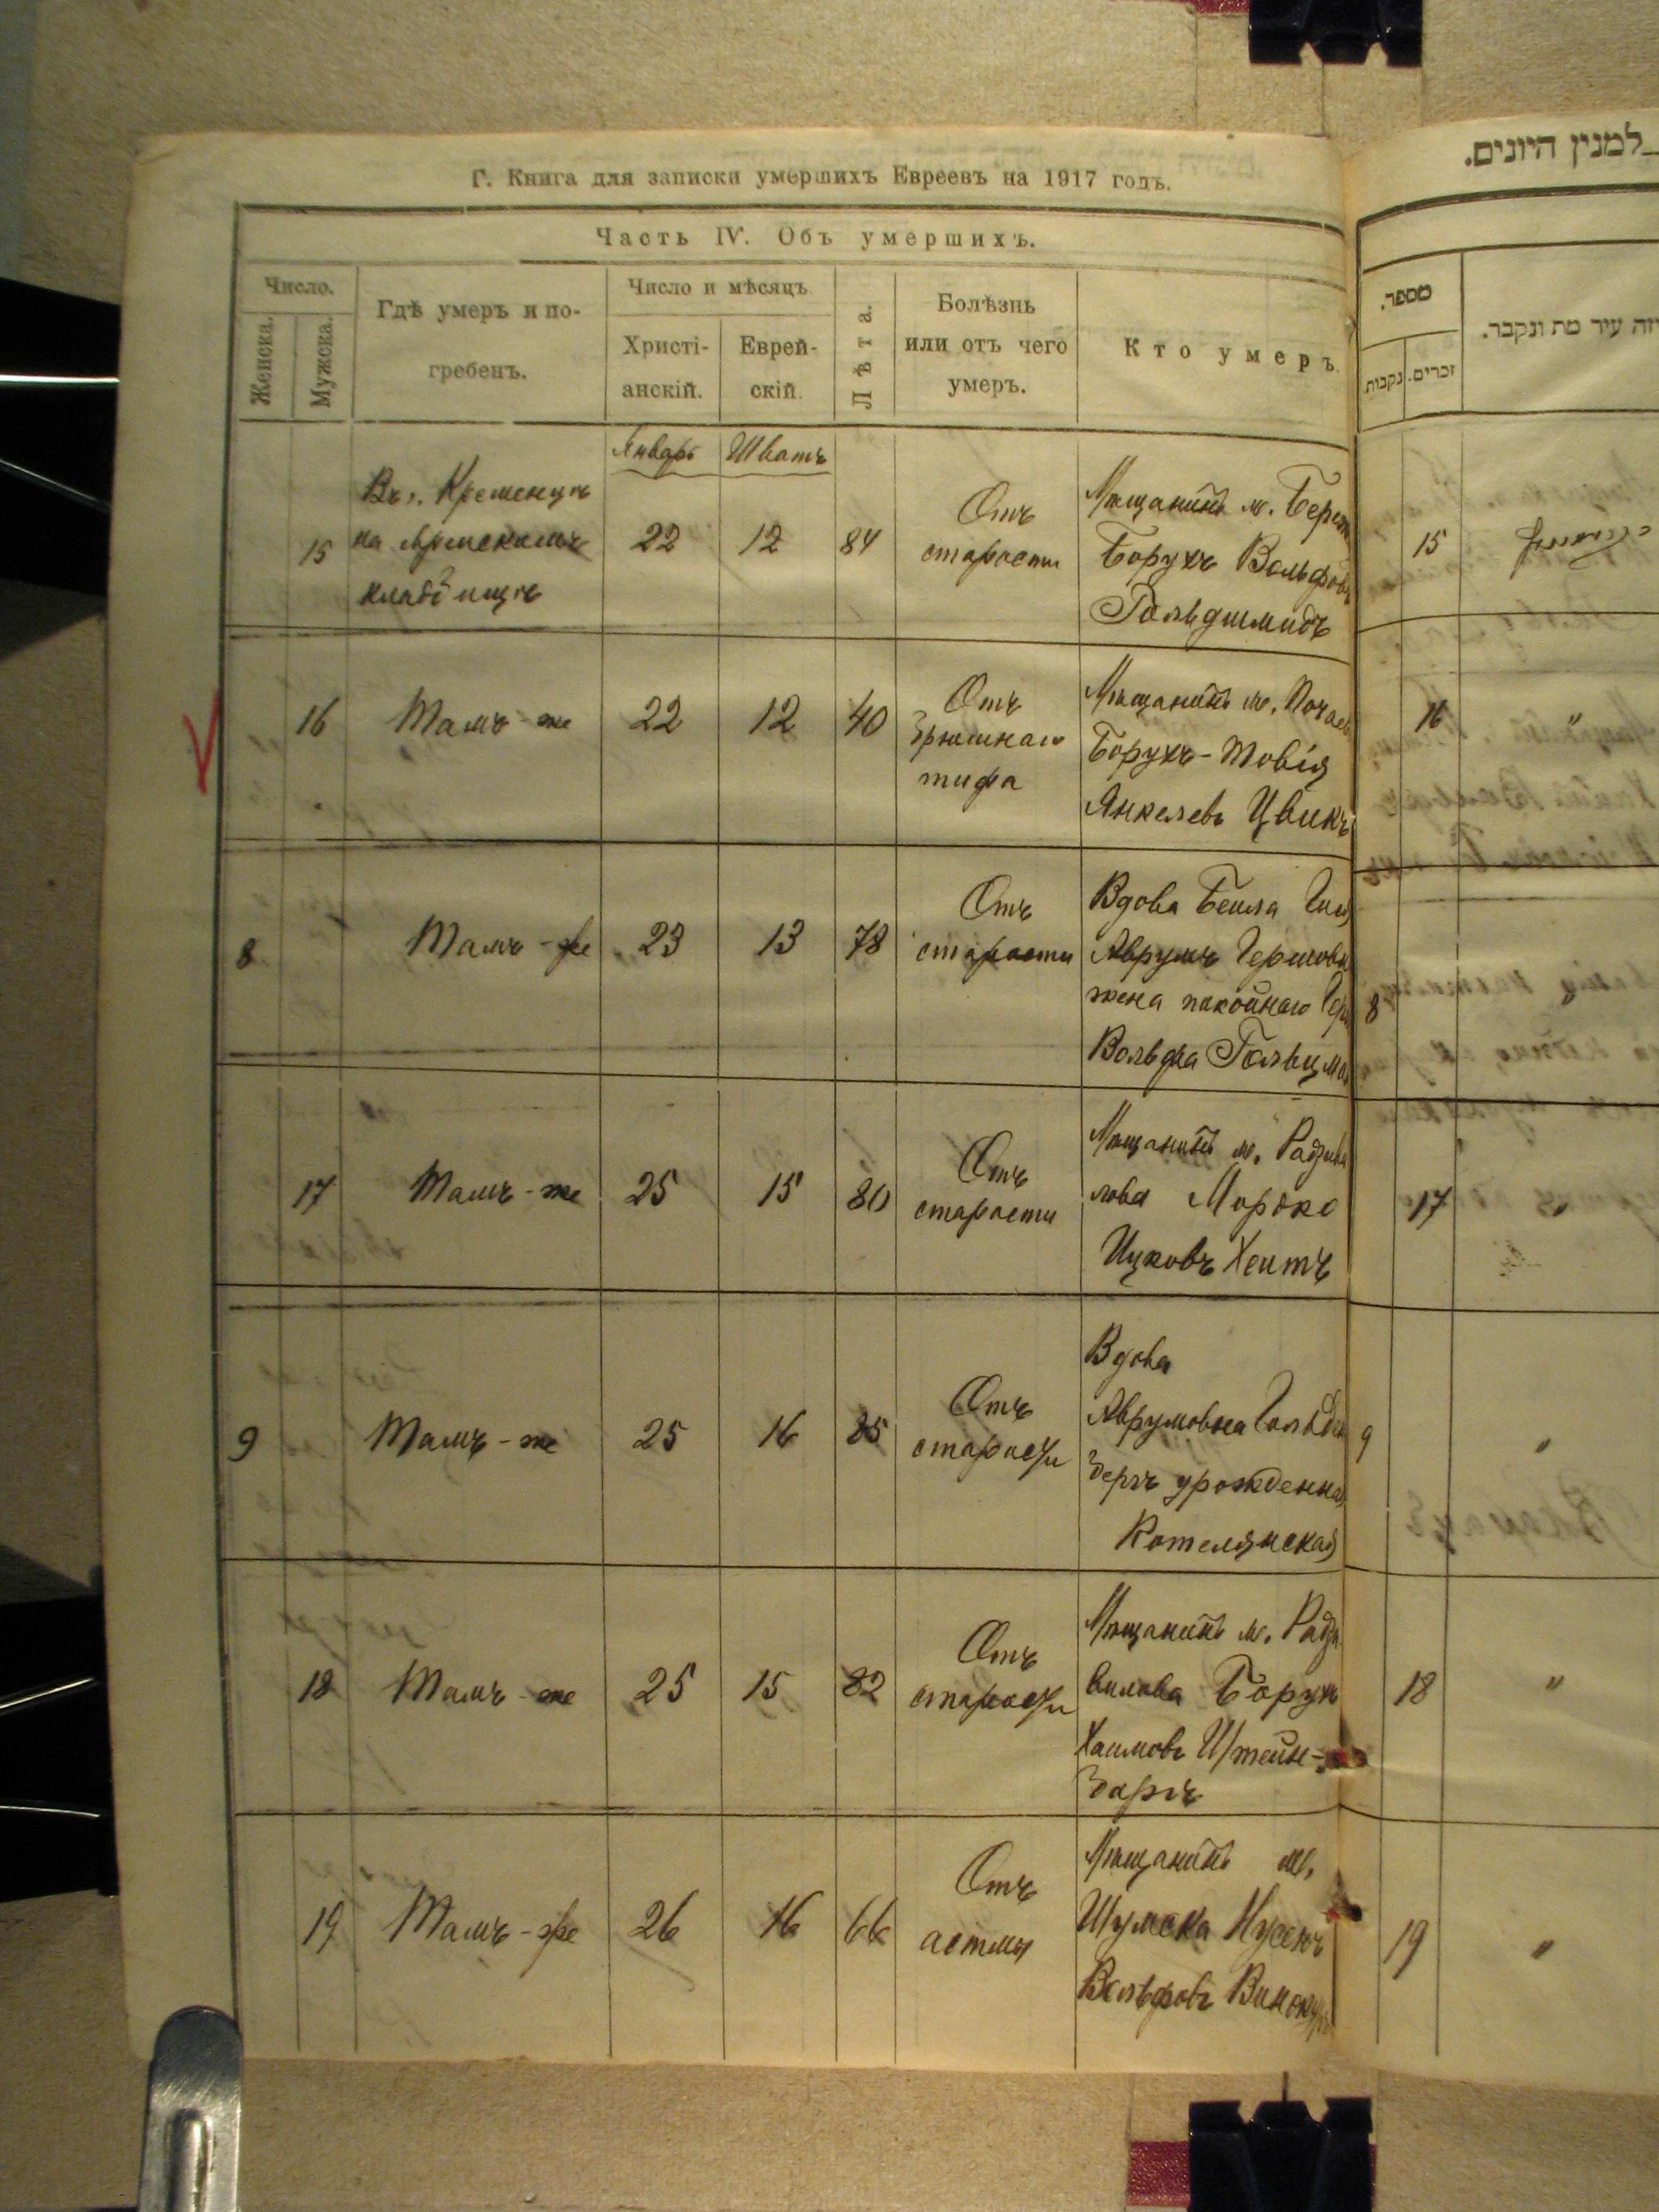 Г. Книга для записки умершихъ Евреевъ на 1917 годъ.
למנין היונים.
Часть IV. Объ умершихъ.
Число.
Женска.
Мужска.
Гдѣ умеръ и по-
гребенъ.
Число и мѣсяцъ
Христі-
анскій.
Еврей-
скій.
Лѣта.
Болѣзнь
или отъ чего
умеръ.
Кто умеръ.
מספר.
נקבות.
זכרים.
עיר מת ונקבר.
Январь Шватъ
15
Въ г. Кременцѣ
на
кладбищѣ
22 12 84
Отъ
старости
Мѣщанинъ м.
Борухъ Вольфовъ
Гольдшмидъ
15
16 Тамъ-же 22 12 40
Отъ
брюшнаго
тифа
Мѣщанинъ м. Почаев
Борухъ-Товія
Янкелевъ Цвикъ
16 "
8 Тамъ-же 23 13 78
Отъ
старости
Вдова Бейла
Аврумъ Гершов
жена покойнаго
Вольфа Гольцма
8
17 Тамъ-же 25 15 80
Отъ
старости
Мѣщанинъ м. Радзиви
лова Мордко
Ицковъ Хейтъ
17 "
9 Тамъ-же 25 16 85
Отъ
старости
Вдова
Аврумовна Гольден
бергъ урожденная
Котелянская
9 "
18 Тамъ-же 25 15 82
Отъ
старости
Мѣщанинъ м. Радзи
вилова Борух
Хаимовъ Штейн-
баргъ
18 "
19 Тамъ-же 26 16 66
Отъ
астмы
Мѣщанинъ м.
Шумска Нусенъ
Вольфовъ Винокуръ
19 "